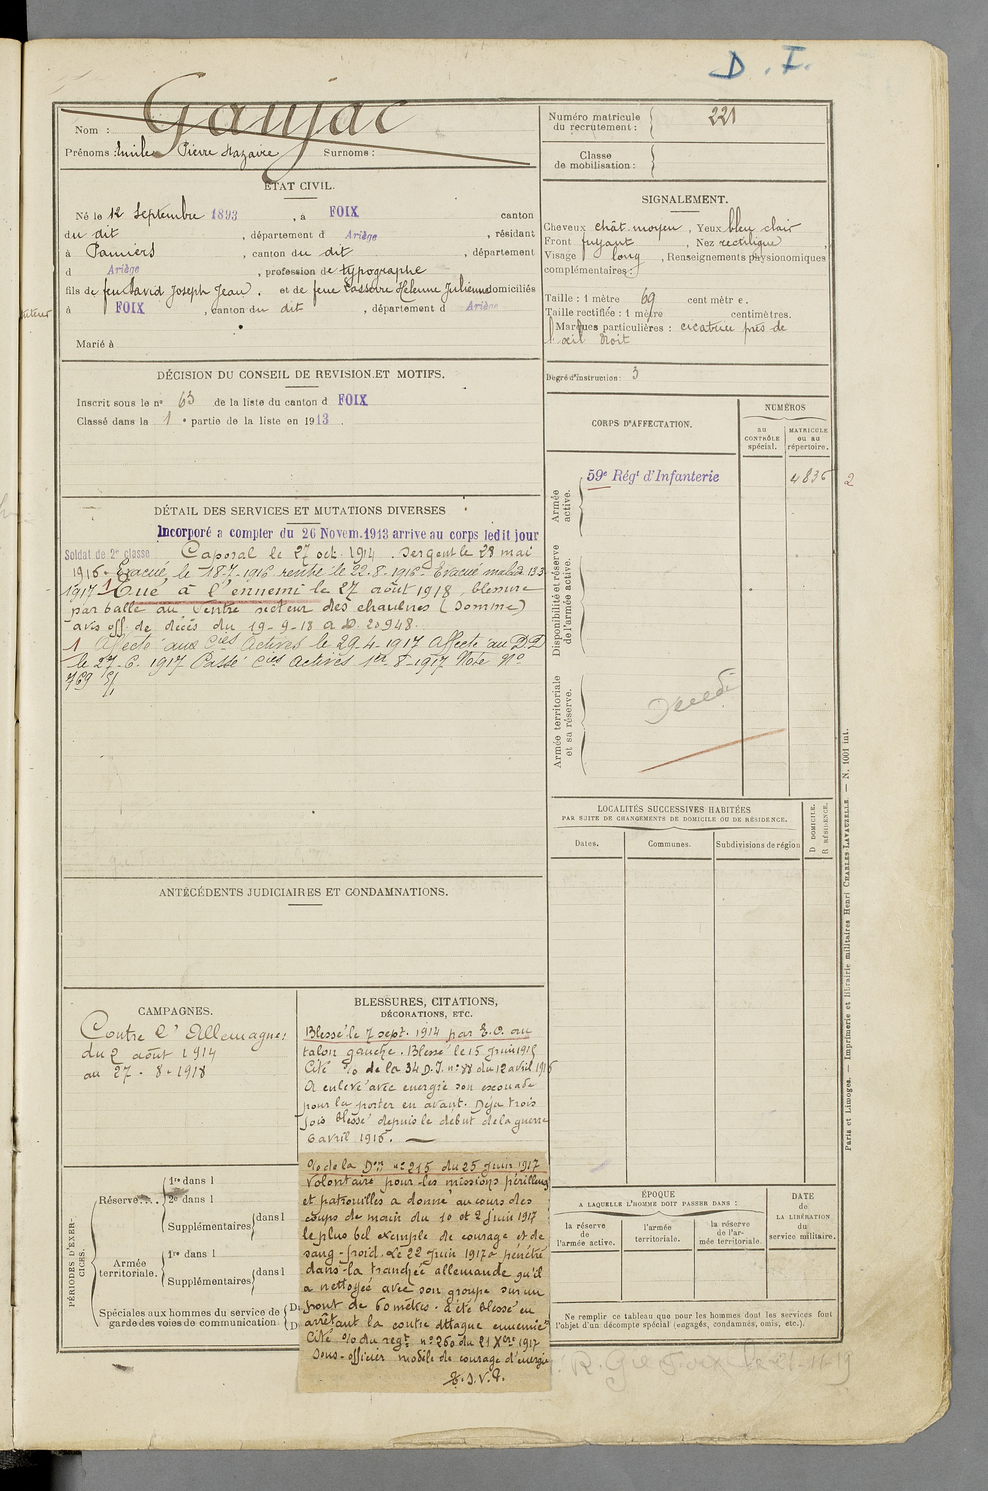 D. I.
Gaujac
Nom :
Prénoms : Emile Pierre Nazaire Surnoms :
ÉTAT CIVIL.
Né le 12 Septembre 1893, à FOIX canton
du dit, département d Ariège, résidant
à Pamiers, canton du dit, département
d Ariège, profession de typographe
fils de feu David Joseph Jean. et de feue Lasserre Hélenne Julienne domiciliés
à FOIX, canton du dit, département d Ariège
Marié à
DÉCISION DU CONSEIL DE REVISION ET MOTIFS.
Inscrit sous le n° 63 de la liste du canton d FOIX
Classé dans la 1 e partie de la liste en 1913.
DÉTAIL DES SERVICES ET MUTATIONS DIVERSES
Incorporé a compter du 26 Novem. 1913 arrive au corps ledit jour
Soldat de 2e classe Caporal le 27 oct. 1914. Sergent le 28 mai
1916. Evacué le 18-7-1916 rentré le 22-8-1916. Evacué malade 13.3
1917 1 Tué à l'ennemi le 27 août 1918, blessure
par balle au Ventre secteur des chaulnes (Somme)
avis off. de décès du 19-9-18 A D. 20948.
1 Affecté aux Cies Actives le 29.4.1917 Affecté au DD
le 27-6-1917 Passé Cies Actives 1er-8-1917 Note No
769 S/
ANTÉCÉDENTS JUDICIAIRES ET CONDAMNATIONS.
CAMPAGNES.
Contre l'Allemagne:
du 2 août 1914
au 27-8-1918
BLESSURES, CITATIONS,
DÉCORATIONS, ETC.
Blessé le 7 sept. 1914 par E.O. au
talon gauche. Blessé le 15 Juin 1915
Cité % de la 34 D.I. n° 88 du 12 avril 1916
A enlevé avec energie son escouade
pour la porter en avant. Déjà trois
fois blessé depuis le debut de la guerre
6 avril 1916.
% de la Don n° 215 du 25 Juin 1917
Volontaire pour les missions périlleuses
et patrouilles a donné au cours des
coups de main du 10 et 2 Juin 1917
le plus bel exemple de courage et de
sang-froid. Le 22 Juin 1917 a pénétré
dans la tranchée allemande qu'il
a nettoyée avec son groupe sur un
front de 60 mètres. a été blessé en
arrêtant la contre attaque ennemie
Cité % du regt n° 260 du 21 Xbre 1917
Sous-officier modèle de courage d'énergie
T.S.V.P.
PÉRIODES D'EXERCICES.
Réserve.... 1re dans l
2e dans l
Supplémentaires dans l
Armée territoriale. 1re dans l
Supplémentaires dans l
Spéciales aux hommes du service de
garde des voies de communication.
Numéro matricule
du recrutement : 221
Classe
de mobilisation :
SIGNALEMENT.
Cheveux chât. moyen, Yeux bleu clair
Front fuyant, Nez rectiligne,
Visage long, Renseignements physionomiques
complémentaires :
Taille : 1 mètre 69 centimètre.
Taille rectifiée : 1 mètre centimètres.
Marques particulières : cicatrice près de
l'œil droit
Degré d'instruction : 3
CORPS D'AFFECTATION.
NUMÉROS
AU
CONTRÔLE
spécial.
MATRICULE
ou au
répertoire.
Armée
active.
59e Régt d'Infanterie
4836
2
Disponibilité et réserve
de l'armée active.
Armée territoriale
et sa réserve.
Décédé
LOCALITÉS SUCCESSIVES HABITÉES
PAR SUITE DE CHANGEMENTS DE DOMICILE OU DE RÉSIDENCE.
Dates.
Communes.
Subdivisions de région
D DOMICILE.
R RÉSIDENCE.
ÉPOQUE
A LAQUELLE L'HOMME DOIT PASSER DANS :
la réserve
de
l'armée active.
l'armée
territoriale.
la réserve
de l'armée territoriale.
DATE
de
LA LIBÉRATION
du
service militaire.
Ne remplir ce tableau que pour les hommes dont les services font
l'objet d'un décompte spécial (engagés, condamnés, omis, etc.).
Paris et Limoges. — Imprimerie et librairie militaires Henri CHARLES-LAVAUZELLE. — N. 1001 int.